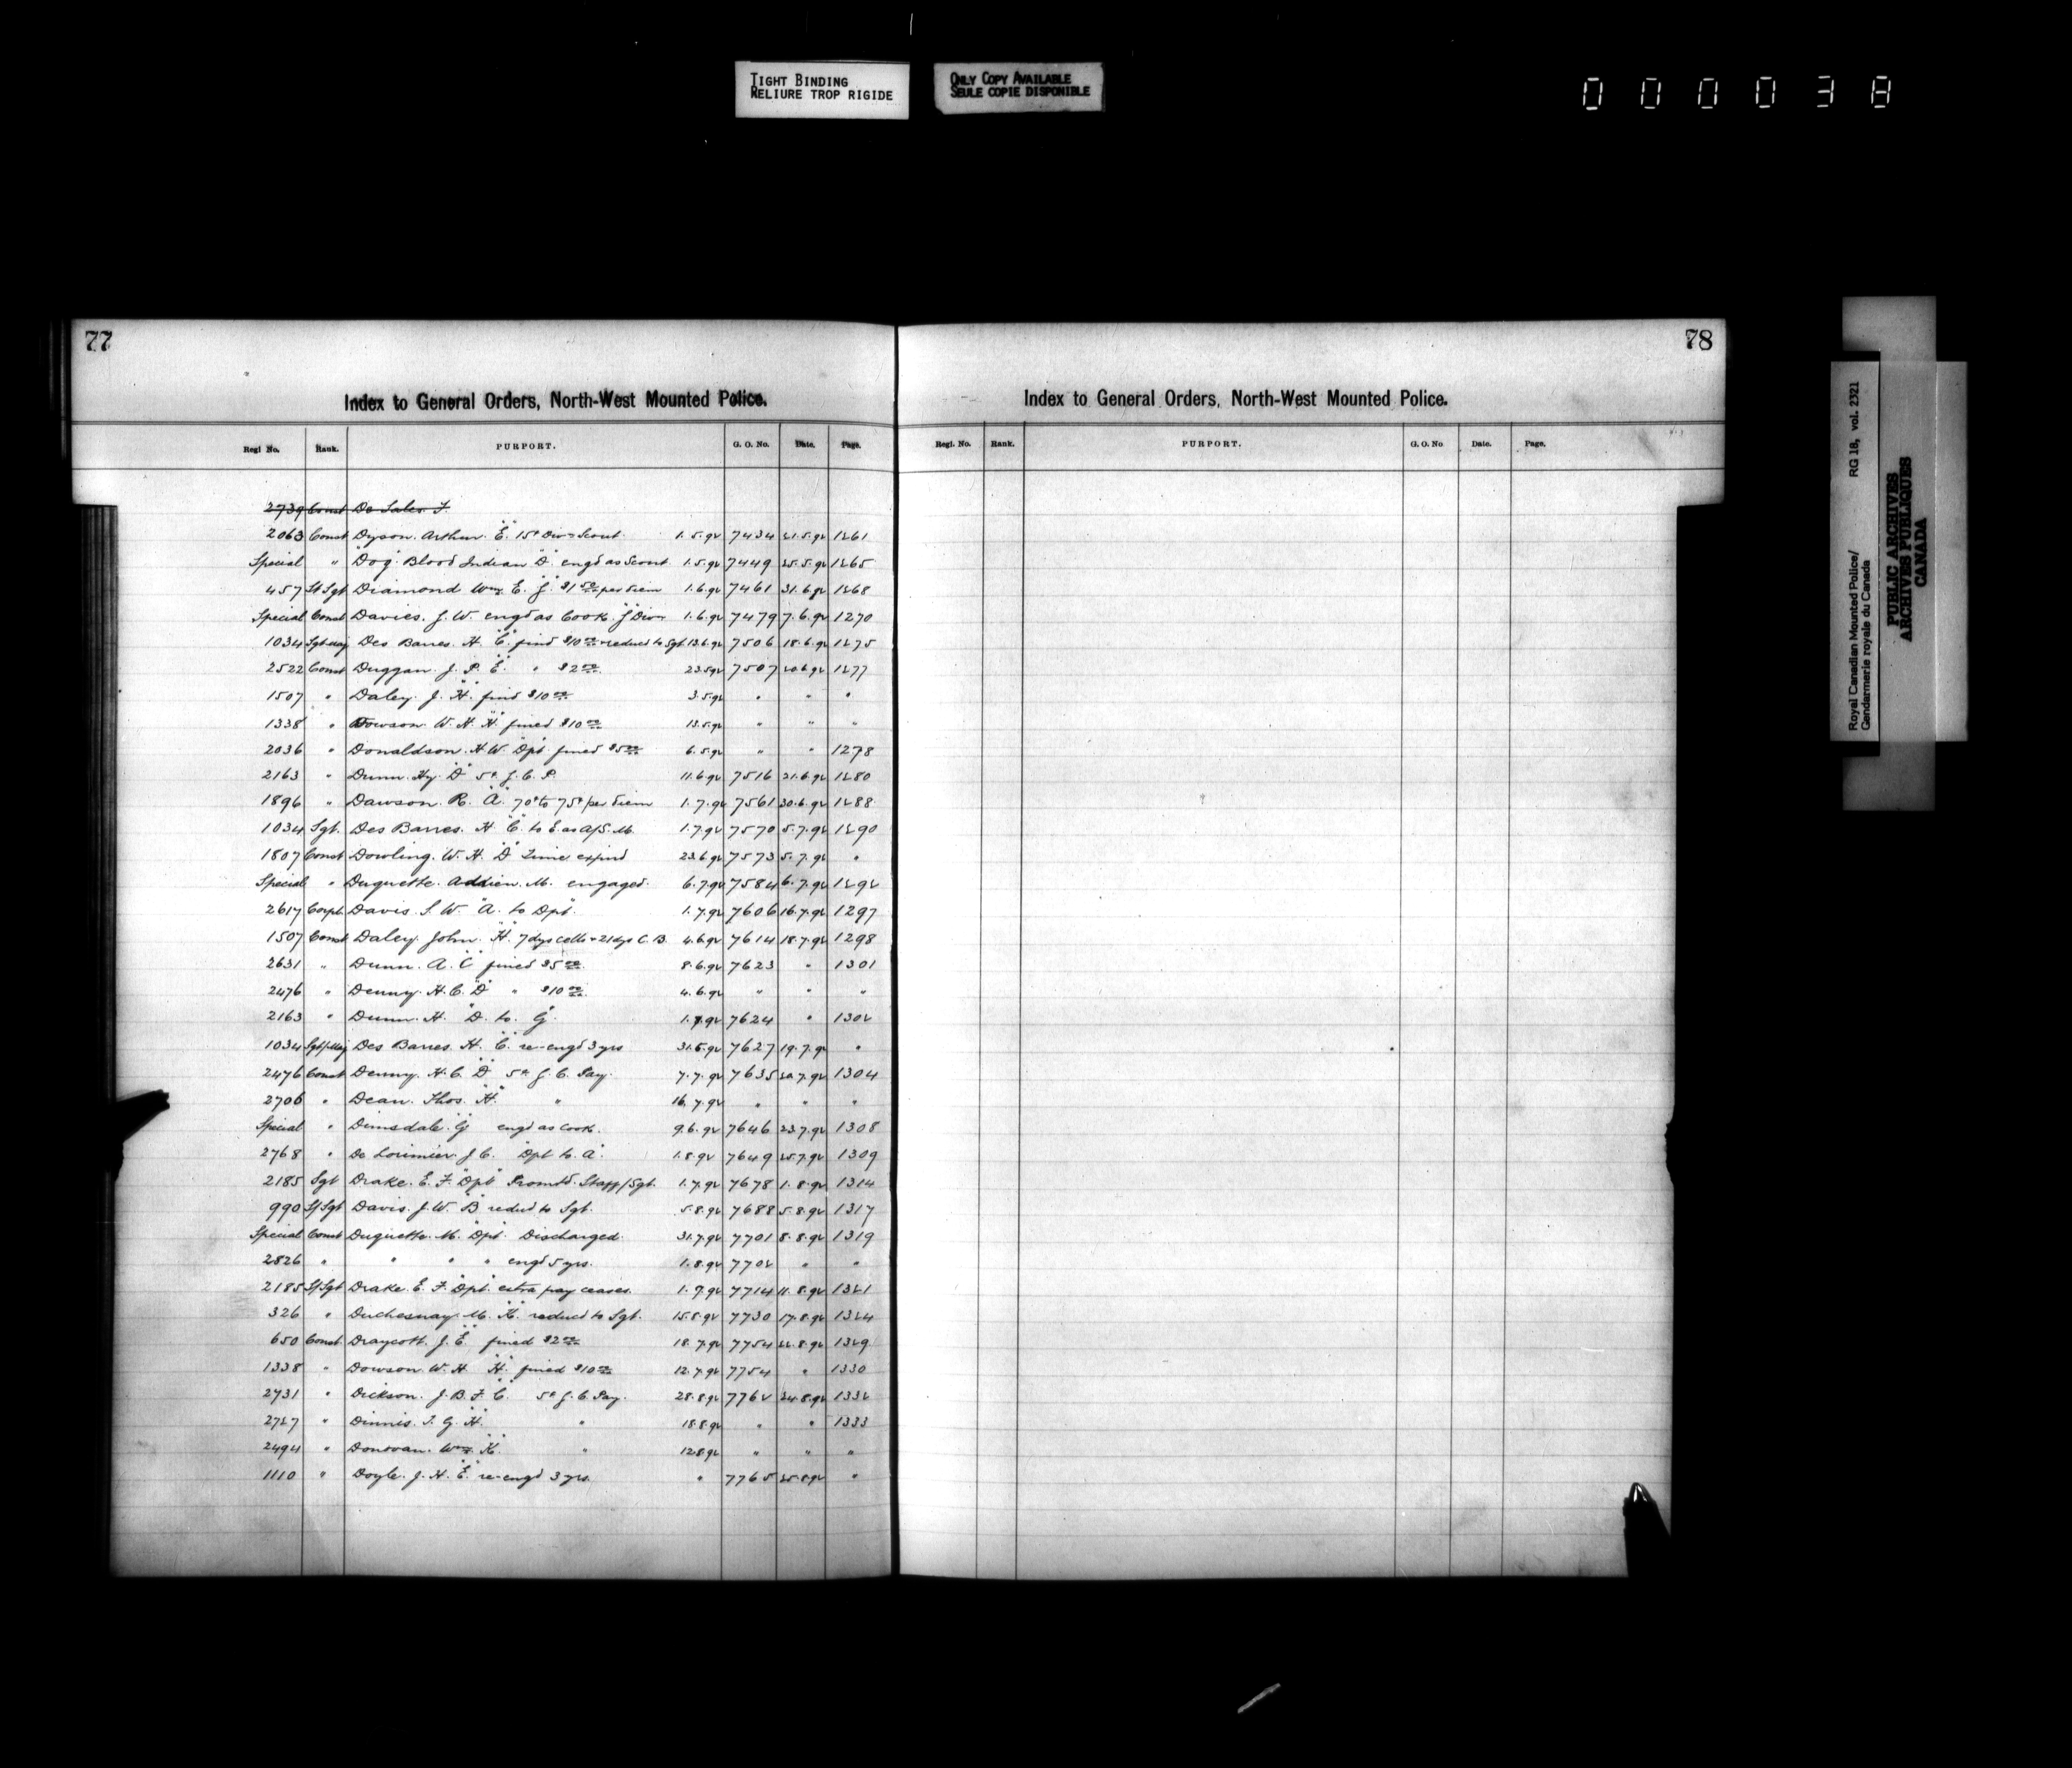 TIGHT BINDING
RELIURE TROP RIGIDE
ONLY COPY AVAILABLE
SEULE COPIE DISPONIBLE
000038
77
Index to General Orders, North-West Mounted Police.
Regl No. Rank. PURPORT. G. O. No. Date. Page.
2739 Const De Sales. F.
2063 Const Dyson. Arthur. "E" 15¢ Divn Scout. 1.5.92 7434 21.5.92 1261
Special " "Dog" Blood Indian "D" engd as Scout 1.5.92 7449 25.5.92 1265
457 St Sgt Diamond Wm. E. "J" $1.50 per diem 1.6.92 7461 31.6.92 1268
Special Const Davies. J. W. engd as Cook. "J" Divn 1.6.92 7479 7.6.92 1270
1034 Sgt Maj Des Barres. H. "C" fined $10.00 & reduced to Sgt 13.6.92 7506 18.6.92 1275
2522 Const Duggan. J. P. "E" " $2.00 23.5.92 7507 20.6.92 1277
1507 " Daley. J. "H" fined $10.00 3.5.92 " " "
1338 " Dowson. W. H. "H" fined $10.00 13.5.92 " " "
2036 " Donaldson. H. W. "Dpt" fined $5.00 6.5.92 " " 1278
2163 " Dunn. Hy. "D" 5¢ G. C. P. 11.6.92 7516 21.6.92 1280
1896 " Dawson. R. "A" 70¢ to 75¢ per diem 1.7.92 7561 30.6.92 1288
1034 Sgt. Des Barres. H "C" to E as A/S. M. 1.7.92 7570 5.7.92 1290
1807 Const Dowling. W. H. "D" Time expired 23.6.92 7573 5.7.92 "
Special " Duquette. Addien. M. engaged. 6.7.92 7584 6.7.92 1292
2617 Corpl. Davis. S. W. "A" to "Dpt" 1.7.92 7606 16.7.92 1297
1507 Const Daley. John. "H" 7 dys cells & 21 dys C. B. 4.6.92 7614 18.7.92 1298
2631 " Dunn. A. "C" fined $5.00 8.6.92 7623 " 1301
2476 " Denny. H. C. "D" " $10.00 4.6.92 " " "
2163 " Dunn. H. "D" to "G" 1.7.92 7624 " 1302
1034 Sgt/Maj Des Barres. H. "C" re-engd 3 yrs 31.5.92 7627 19.7.92 "
2476 Const Denny. H. C. "D" 5¢ G. C. Pay. 7.7.92 7635 20.7.92 1304
2706 " Dean. Thos. "H" " 16.7.92 " " "
Special " Dimsdale. "G" engd as Cook. 9.6.92 7646 23.7.92 1308
2768 " De Lorimier. J. C. "Dpt" to "A" 1.8.92 7649 25.7.92 1309
2185 Sgt Drake. E. F. "Dpt" Promtd. Staff/Sgt. 1.7.92 7678 1.8.92 1314
990 S/Sgt Davis. J. W. "B" reduced to Sgt. 5.8.92 7688 5.8.92 1317
Special Const Duquette. M. "Dpt" Discharged. 31.7.92 7701 8.8.92 1319
2826 " " " " engd 5 yrs. 1.8.92 7702 " "
2185 S/Sgt Drake. E. F. "Dpt" extra pay ceases. 1.7.92 7714 11.8.92 1321
326 " Duchesnay. M. "K" reduced to Sgt. 15.8.92 7730 17.8.92 1324
650 Const. Draycott. J. "E" fined $2.00 18.7.92 7754 22.8.92 1329
1338 " Dowson. W. H "H" fined $10.00 12.7.92 7754 " 1330
2731 " Dickson. J. B. F. "C" 5¢ G. C. Pay. 28.8.92 7762 24.8.92 1332
2727 " Dinnis. T. G. "H" " 18.8.92 " " 1333
2494 " Donovan. Wm. "K" " 12.8.92 " " "
1110 " Doyle. J. H. "E" re-engd 3 yrs. " 7765 25.8.92 "
78
Index to General Orders, North-West Mounted Police.
Regl. No. Rank. PURPORT. G. O. No Date. Page.
Royal Canadian Mounted Police/ RG 18, vol. 2321
Gendarmerie royale du Canada
PUBLIC ARCHIVES
ARCHIVES PUBLIQUES
CANADA